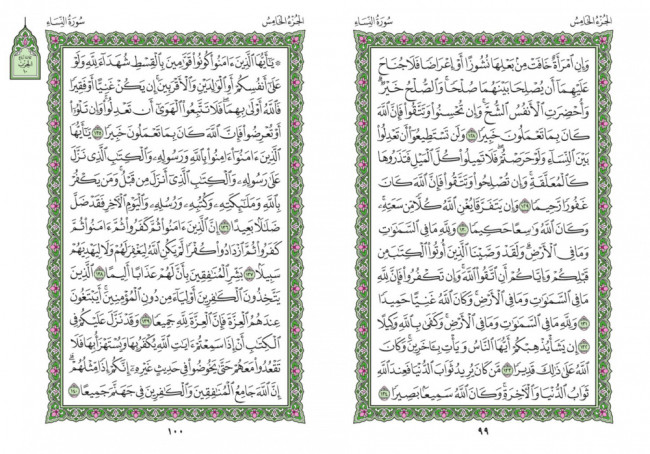 الجُزْءُ الخَامِسُ سُورَةُ النِّسَاءِ
وَإِنِ ٱمْرَأَةٌ خَافَتْ مِنۢ بَعْلِهَا نُشُوزًا أَوْ إِعْرَاضًا فَلَا جُنَاحَ
عَلَيْهِمَآ أَن يُصْلِحَا بَيْنَهُمَا صُلْحًا ۚ وَٱلصُّلْحُ خَيْرٌ ۗ
وَأُحْضِرَتِ ٱلْأَنفُسُ ٱلشُّحَّ ۚ وَإِن تُحْسِنُوا۟ وَتَتَّقُوا۟ فَإِنَّ ٱللَّهَ
كَانَ بِمَا تَعْمَلُونَ خَبِيرًا ١٢٨ وَلَن تَسْتَطِيعُوٓا۟ أَن تَعْدِلُوا۟
بَيْنَ ٱلنِّسَآءِ وَلَوْ حَرَصْتُمْ ۖ فَلَا تَمِيلُوا۟ كُلَّ ٱلْمَيْلِ فَتَذَرُوهَا
كَٱلْمُعَلَّقَةِ ۚ وَإِن تُصْلِحُوا۟ وَتَتَّقُوا۟ فَإِنَّ ٱللَّهَ كَانَ
غَفُورًا رَّحِيمًا ١٢٩ وَإِن يَتَفَرَّقَا يُغْنِ ٱللَّهُ كُلًّا مِّن سَعَتِهِۦ ۚ
وَكَانَ ٱللَّهُ وَٰسِعًا حَكِيمًا ١٣٠ وَلِلَّهِ مَا فِى ٱلسَّمَٰوَٰتِ
وَمَا فِى ٱلْأَرْضِ ۗ وَلَقَدْ وَصَّيْنَا ٱلَّذِينَ أُوتُوا۟ ٱلْكِتَٰبَ مِن
قَبْلِكُمْ وَإِيَّاكُمْ أَنِ ٱتَّقُوا۟ ٱللَّهَ ۚ وَإِن تَكْفُرُوا۟ فَإِنَّ لِلَّهِ
مَا فِى ٱلسَّمَٰوَٰتِ وَمَا فِى ٱلْأَرْضِ ۚ وَكَانَ ٱللَّهُ غَنِيًّا حَمِيدًا
١٣١ وَلِلَّهِ مَا فِى ٱلسَّمَٰوَٰتِ وَمَا فِى ٱلْأَرْضِ ۚ وَكَفَىٰ بِٱللَّهِ وَكِيلًا
١٣٢ إِن يَشَأْ يُذْهِبْكُمْ أَيُّهَا ٱلنَّاسُ وَيَأْتِ بِـَٔاخَرِينَ ۚ وَكَانَ
ٱللَّهُ عَلَىٰ ذَٰلِكَ قَدِيرًا ١٣٣ مَّن كَانَ يُرِيدُ ثَوَابَ ٱلدُّنْيَا فَعِندَ ٱللَّهِ
ثَوَابُ ٱلدُّنْيَا وَٱلْـَٔاخِرَةِ ۚ وَكَانَ ٱللَّهُ سَمِيعًۢا بَصِيرًا ١٣٤
٩٩
الجُزْءُ الخَامِسُ سُورَةُ النِّسَاءِ
۞ يَٰٓأَيُّهَا ٱلَّذِينَ ءَامَنُوا۟ كُونُوا۟ قَوَّٰمِينَ بِٱلْقِسْطِ شُهَدَآءَ لِلَّهِ وَلَوْ
عَلَىٰٓ أَنفُسِكُمْ أَوِ ٱلْوَٰلِدَيْنِ وَٱلْأَقْرَبِينَ ۚ إِن يَكُنْ غَنِيًّا أَوْ فَقِيرًا
فَٱللَّهُ أَوْلَىٰ بِهِمَا ۖ فَلَا تَتَّبِعُوا۟ ٱلْهَوَىٰٓ أَن تَعْدِلُوا۟ ۚ وَإِن تَلْوُۥٓا۟
أَوْ تُعْرِضُوا۟ فَإِنَّ ٱللَّهَ كَانَ بِمَا تَعْمَلُونَ خَبِيرًا ١٣٥ يَٰٓأَيُّهَا
ٱلَّذِينَ ءَامَنُوٓا۟ ءَامِنُوا۟ بِٱللَّهِ وَرَسُولِهِۦ وَٱلْكِتَٰبِ ٱلَّذِى نَزَّلَ
عَلَىٰ رَسُولِهِۦ وَٱلْكِتَٰبِ ٱلَّذِىٓ أَنزَلَ مِن قَبْلُ ۚ وَمَن يَكْفُرْ
بِٱللَّهِ وَمَلَٰٓئِكَتِهِۦ وَكُتُبِهِۦ وَرُسُلِهِۦ وَٱلْيَوْمِ ٱلْـَٔاخِرِ فَقَدْ ضَلَّ
ضَلَٰلًۢا بَعِيدًا ١٣٦ إِنَّ ٱلَّذِينَ ءَامَنُوا۟ ثُمَّ كَفَرُوا۟ ثُمَّ ءَامَنُوا۟ ثُمَّ
كَفَرُوا۟ ثُمَّ ٱزْدَادُوا۟ كُفْرًا لَّمْ يَكُنِ ٱللَّهُ لِيَغْفِرَ لَهُمْ وَلَا لِيَهْدِيَهُمْ
سَبِيلًۢا ١٣٧ بَشِّرِ ٱلْمُنَٰفِقِينَ بِأَنَّ لَهُمْ عَذَابًا أَلِيمًا ١٣٨ ٱلَّذِينَ
يَتَّخِذُونَ ٱلْكَٰفِرِينَ أَوْلِيَآءَ مِن دُونِ ٱلْمُؤْمِنِينَ ۚ أَيَبْتَغُونَ
عِندَهُمُ ٱلْعِزَّةَ فَإِنَّ ٱلْعِزَّةَ لِلَّهِ جَمِيعًا ١٣٩ وَقَدْ نَزَّلَ عَلَيْكُمْ فِى
ٱلْكِتَٰبِ أَنْ إِذَا سَمِعْتُمْ ءَايَٰتِ ٱللَّهِ يُكْفَرُ بِهَا وَيُسْتَهْزَأُ بِهَا فَلَا
تَقْعُدُوا۟ مَعَهُمْ حَتَّىٰ يَخُوضُوا۟ فِى حَدِيثٍ غَيْرِهِۦٓ ۚ إِنَّكُمْ إِذًا مِّثْلُهُمْ ۗ
إِنَّ ٱللَّهَ جَامِعُ ٱلْمُنَٰفِقِينَ وَٱلْكَٰفِرِينَ فِى جَهَنَّمَ جَمِيعًا ١٤٠
١٠٠